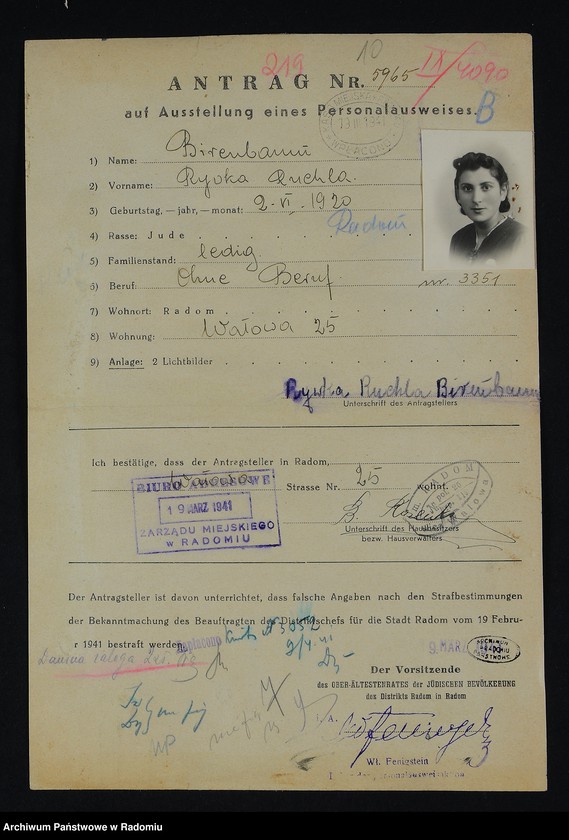 219
10
IX/4090
ANTRAG NR. 5965
auf Ausstellung eines Personalausweises.
B
1) Name: Birenbaum
2) Vorname: Rywka Ruchla.
3) Geburtstag, — jahr, — monat: 2-VI. 1920
Radom
4) Rasse: Jude
5) Familienstand: ledig
6) Beruf: Ohne Beruf
nr. 3351
7) Wohnort: Radom
8) Wohnung: Wałowa 25
9) Anlage: 2 Lichtbilder
Rywka Ruchla Birenbaum
Unterschrift des Antragstellers
Ich bestätige, dass der Antragsteller in Radom,
Wałowa Strasse Nr. 25 wohnt.
BIURO ADRESOWE
19 MARZ 1941
ZARZĄDU MIEJSKIEGO
w RADOMIU
Unterschrift des Hausbesitzers
bezw. Hausverwalters
Der Antragsteller ist davon unterrichtet, dass falsche Angaben nach den Strafbestimmungen
der Bekanntmachung des Beauftragten des Distriktschefs für die Stadt Radom vom 19 Febru-
r 1941 bestraft werden.
Zapłacono
9 MARZ
ARCHIWUM
PAŃSTWOWE
Der Vorsitzende
des OBER-ÄLTESTENRATES DER JÜDISCHEN BEVÖLKERUNG
des Distrikts Radom in Radom
I. A.
Wł. Fenigstein
Archiwum Państwowe w Radomiu